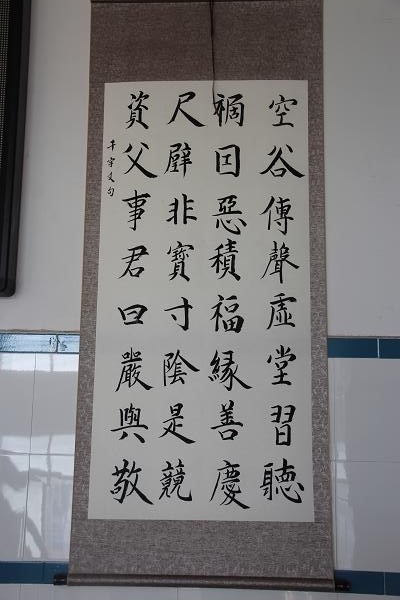 空谷傳聲虛堂習聽
禍因惡積福緣善慶
尺璧非寶寸陰是競
資父事君曰嚴與敬
千字文句